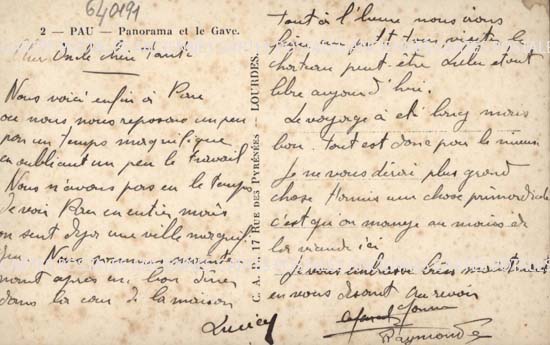 640191
2 — PAU — Panorama et le Gave.
Oncle chère Tante
Nous voici enfin à Pau
où nous nous reposons un peu
par un temps magnifique
en oubliant un peu le travail
Nous n'avons pas eu le temps
de voir Pau en entier mais
on sent deja une ville magnifi
Nous sommes mainte
nant après un bon dîner
dans la cour de la maison
Lucien
C. A. P., 17 RUE DES PYRÉNÉES — LOURDES.
Tout à l'heure nous irons
faire un petit tour visiter le
chateau peut être Lulu etant
libre aujourd'hui.
Le voyage à été long mais
bon. Tout est donc pour le mieux
Je ne vous dirai plus grand
chose Hormis une chose primordiale
c'est qu'on mange au moins de
la viande ici
Je vous embrasse bien
en vous disant au revoir
Raymonde